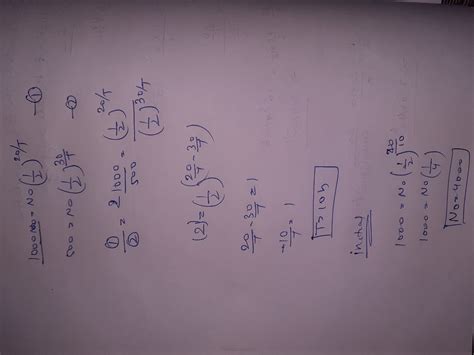 1000 = No (1/2)^20/T —①
500 = No (1/2)^30/T —②
①/② = 1000/500 = (1/2)^20/T / (1/2)^30/T
(2)¹ = (1/2)^(20/T - 30/T)
20/T - 30/T = 1
-10/T = 1
T = 10 h
initial
1000 = No (1/2)^20/10
1000 = No (1/4)
No = 4000